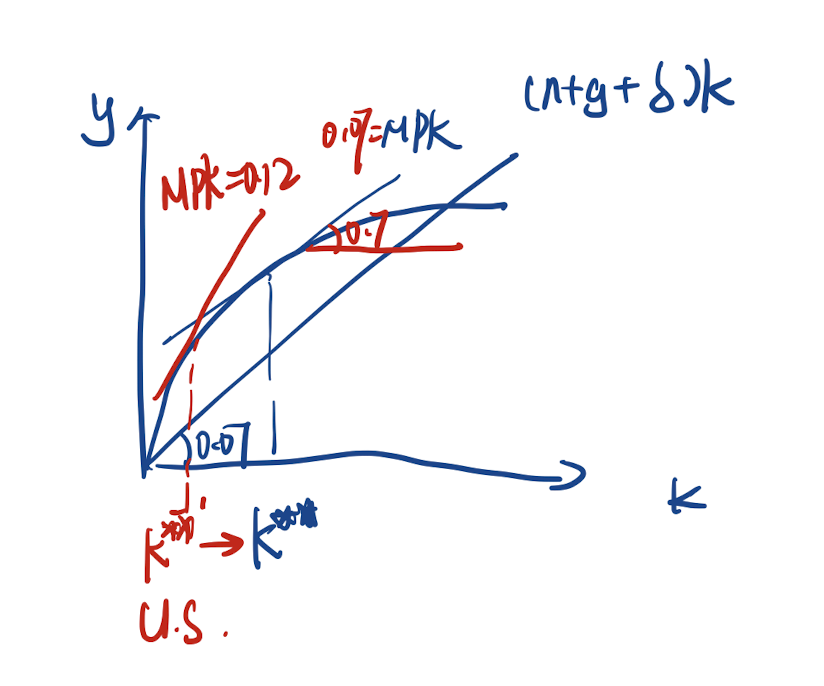 (n+g+δ)k
y
0.07=MPK
MPK=0.12
0.7
0.07
k
K → K
U.S.